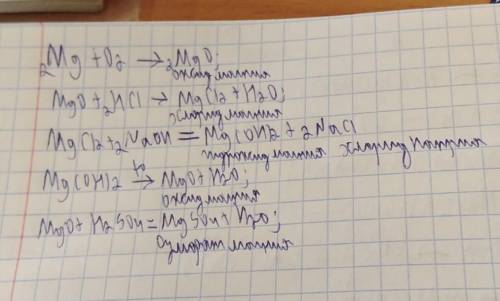 2Mg + O2 → 2MgO;
оксид магния
MgO + 2HCl → MgCl2 + H2O;
хлорид магния
MgCl2 + 2NaOH = Mg(OH)2 + 2NaCl
гидроксид магния хлорид натрия
Mg(OH)2 →t° MgO + H2O;
оксид магния
MgO + H2SO4 = MgSO4 + H2O;
сульфат магния